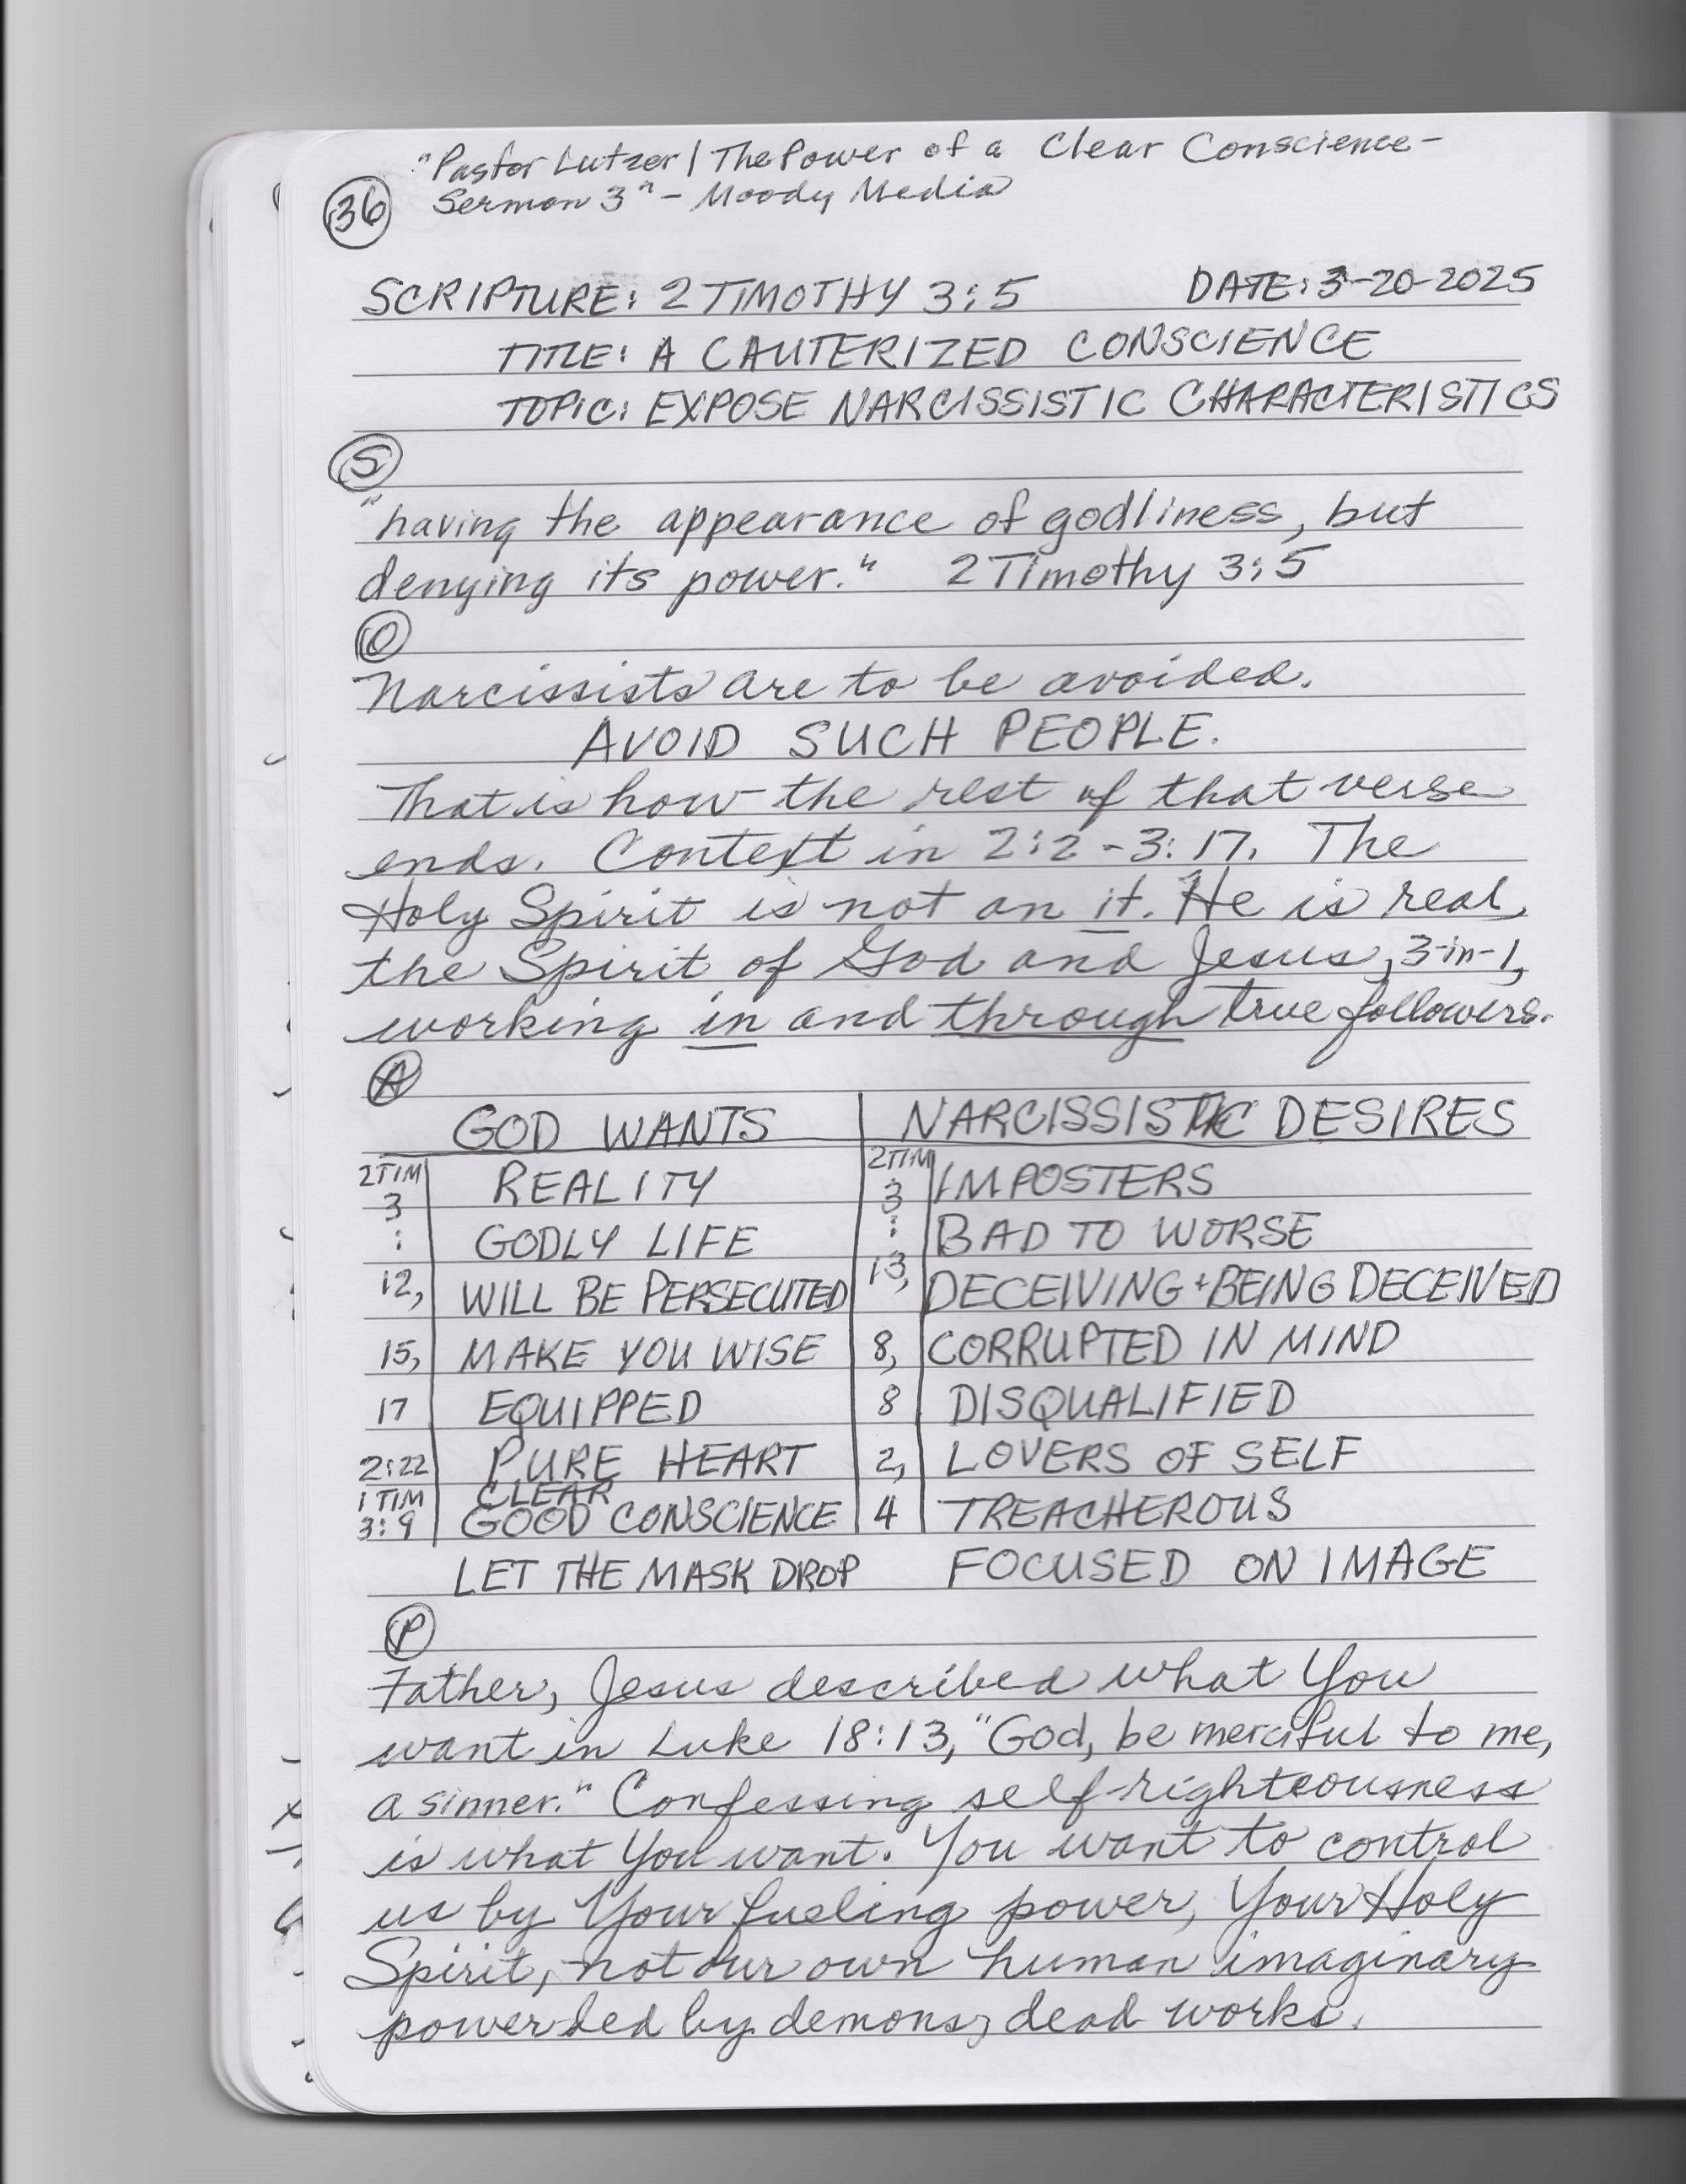 "Pastor Lutzer | The Power of a Clear Conscience -
Sermon 3" - Moody Media
36
SCRIPTURE: 2 TIMOTHY 3:5 DATE: 3-20-2025
TITLE: A CAUTERIZED CONSCIENCE
TOPIC: EXPOSE NARCISSISTIC CHARACTERISTICS
S
"having the appearance of godliness, but
denying its power." 2 Timothy 3:5
O
Narcissists are to be avoided.
AVOID SUCH PEOPLE.
That is how the rest of that verse
ends. Context in 2:2 - 3:17. The
Holy Spirit is not an it. He is real,
the Spirit of God and Jesus, 3-in-1,
working in and through true followers.
A
GOD WANTS NARCISSISTIC DESIRES
2 TIM REALITY 2 TIM IMPOSTERS
3 3
: GODLY LIFE : BAD TO WORSE
12, WILL BE PERSECUTED 13, DECEIVING + BEING DECEIVED
15, MAKE YOU WISE 8, CORRUPTED IN MIND
17 EQUIPPED 8 DISQUALIFIED
2:22 PURE HEART 2, LOVERS OF SELF
1 TIM CLEAR
3:9 GOOD CONSCIENCE 4 TREACHEROUS
LET THE MASK DROP FOCUSED ON IMAGE
P
Father, Jesus described what You
want in Luke 18:13, "God, be merciful to me,
a sinner." Confessing self-righteousness
is what You want. You want to control
us by Your fueling power, Your Holy
Spirit, not our own human imaginary
power led by demons, dead works.